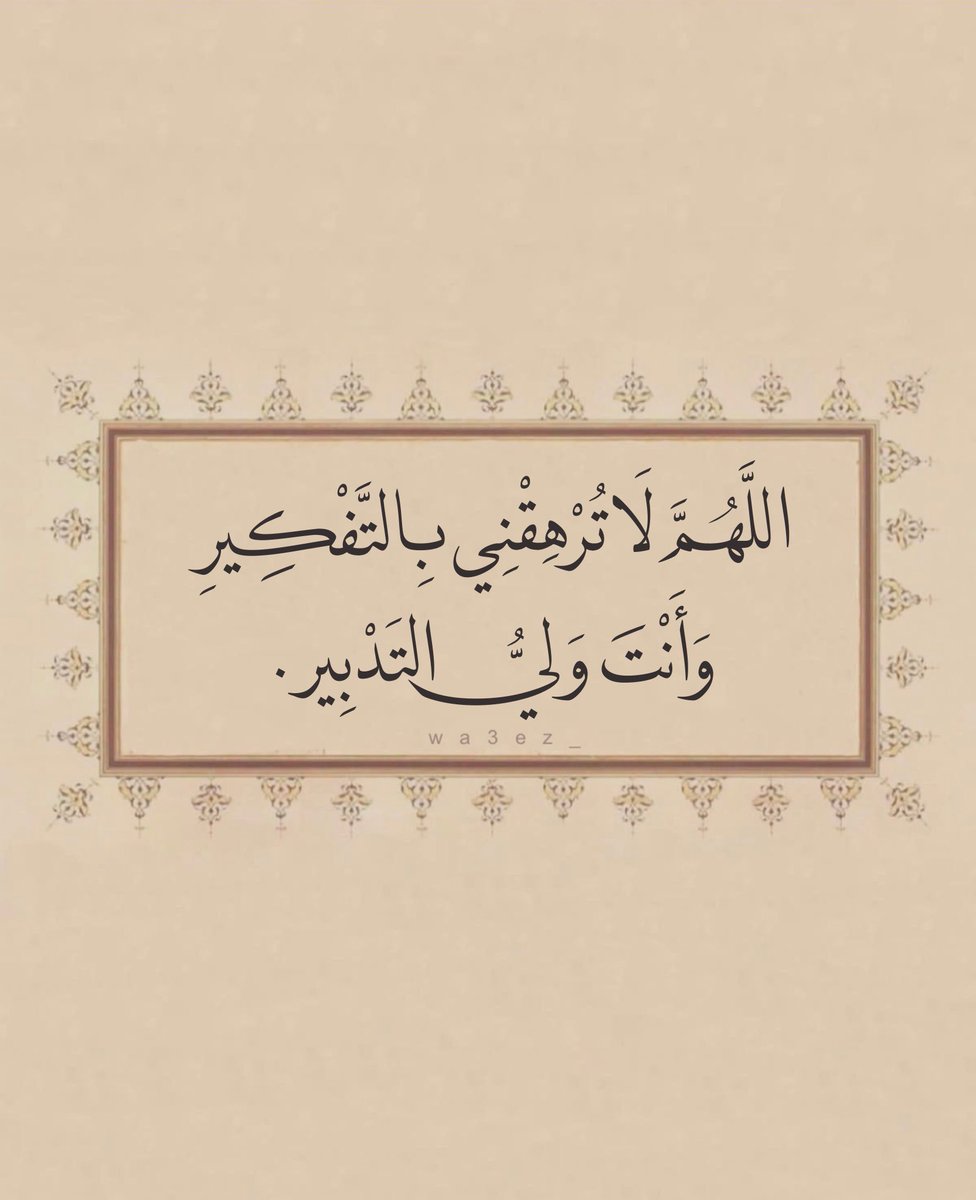 اللَّهُمَّ لَا تُرْهِقْنِي بِالتَّفْكِيرِ
وَأَنْتَ وَلِيُّ التَدْبِير .
wa3ez_